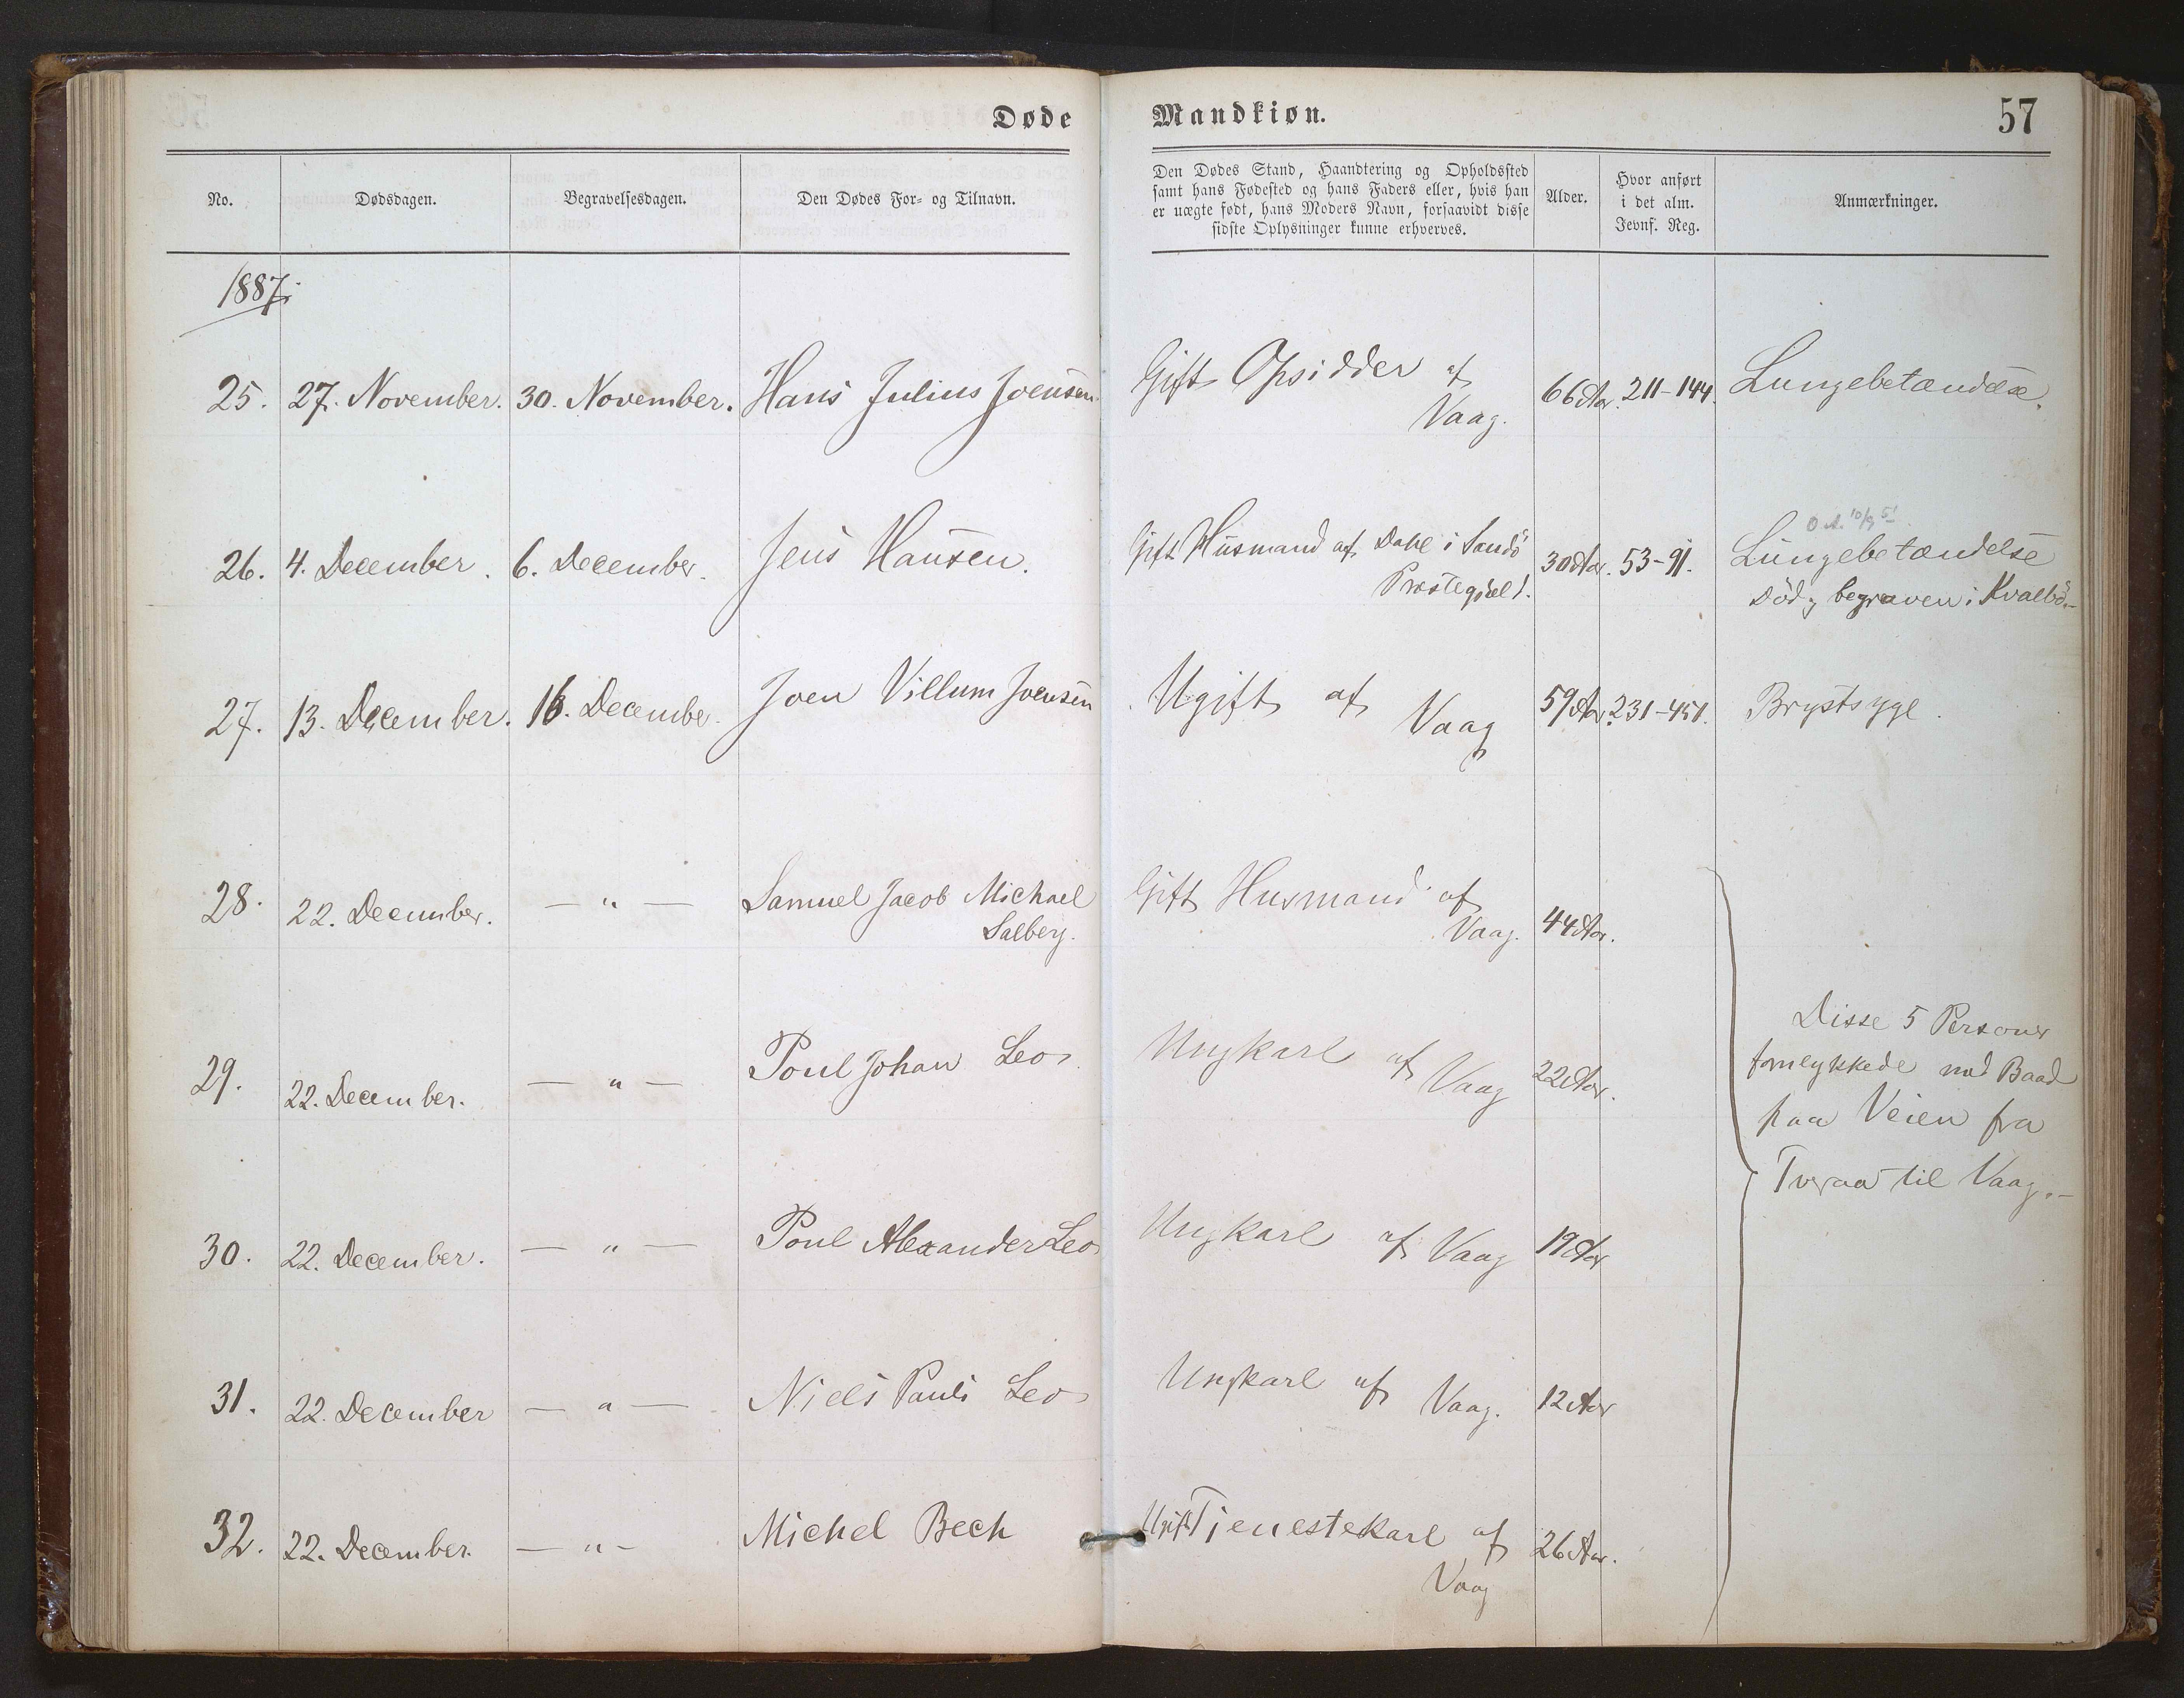 Døde Mandkiøn. 57
No. Dødsdagen. Begravelsesdagen. Den Dødes For- og Tilnavn.
Den Dødes Stand, Haandtering og Opholdssted
samt hans Fødested og hans Faders eller, hvis han
er uægte født, hans Moders Navn, forsaavidt disse
sidste Oplysninger kunne erhverves.
Alder.
Hvor anført
i det alm.
Jevnf. Reg.
Anmærkninger.
1887:
25. 27. November. 30. November. Hans Julius Joensen. Gift Opsidder af
Vaag. 66 Aar. 211-144. Lungebetændelse.
26. 4. December. 6. December. Jens Hansen. Gift Husmand af Dahl i Sandö
Præstegield. 30 Aar. 53-91. Lungebetændelse
Död og begraven i Kvalbö.-
27. 13. December. 16. December. Joen Villum Joensen Ugift af
Vaag 59 Aar. 231-451. Brystsyge.
28. 22. December. — " — Samuel Jacob Michael
Salberg. Gift Husmand af
Vaag. 44 Aar.
29. 22. December. — " — Poul Johan Leo. Ungkarl af Vaag 22 Aar.
30. 22. December. — " — Poul Alexander Leo Ungkarl af Vaag 19 Aar
31. 22. December — " — Niels Pauli Leo Ungkarl af Vaag. 12 Aar
32. 22. December. — " — Michel Bech Ugift Tienestekarl af
Vaag 26 Aar.
Disse 5 Personer
forulykkede med Baad
paa Veien fra
Tveraa til Vaag.-